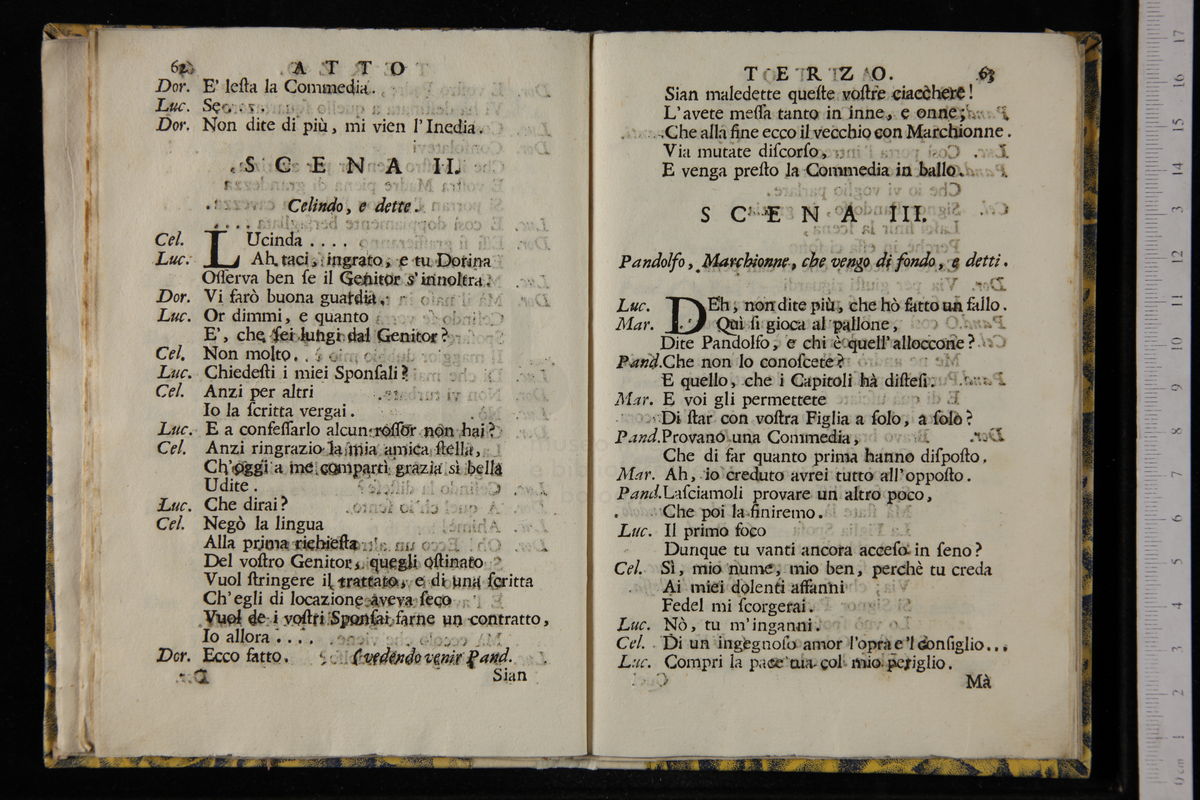 62 ATTO
Dor. E' leſta la Commedia.
Luc. Se . . . .
Dor. Non dite di più, mi vien l'Inedia.
SCENA II.
Celindo, e dette.
Cel. LUcinda . . . .
Luc. Ah taci, ingrato, e tu Dorina
Oſſerva ben ſe il Genitor s'innoltra.
Dor. Vi farò buona guardia.
Luc. Or dimmi, e quanto
E', che ſei lungi dal Genitor?
Cel. Non molto.
Luc. Chiedeſti i miei Sponſali?
Cel. Anzi per altri
Io la ſcritta vergai.
Luc. E a confeſſarlo alcun roſſor non hai?
Cel. Anzi ringrazio la mia amica ſtella,
Ch'oggi a me comparti grazia sì bella
Udite.
Luc. Che dirai?
Cel. Negò la lingua
Alla prima richieſta
Del voſtro Genitor, quegli oſtinato
Vuol ſtringere il trattato, e di una ſcritta
Ch'egli di locazione aveva ſeco
Vuol de i voſtri Sponſai farne un contratto,
Io allora . . . .
Dor. Ecco fatto. (vedendo venir Pand.
Sian
TERZO. 63
Sian maledette queſte voſtre ciacchere!
L'avete meſſa tanto in inne, e onne;
Che alla fine ecco il vecchio con Marchionne.
Via mutate diſcorſo,
E venga preſto la Commedia in ballo.
SCENA III.
Pandolfo, Marchionne, che vengo di fondo, e detti.
Luc. DEh, non dite più, che hò fatto un fallo.
Mar. Quì ſi gioca al pallone,
Dite Pandolfo, e chi è quell'alloccone?
Pand. Che non lo conoſcete?
E quello, che i Capitoli hà diſteſi.
Mar. E voi gli permettete
Di ſtar con voſtra Figlia a ſolo, a ſolo?
Pand. Provano una Commedia,
Che di far quanto prima hanno diſpoſto.
Mar. Ah, io creduto avrei tutto all'oppoſto.
Pand. Laſciamoli provare un altro poco,
Che poi la finiremo.
Luc. Il primo foco
Dunque tu vanti ancora acceſo in ſeno?
Cel. Sì, mio nume, mio ben, perchè tu creda
Ai miei dolenti affanni
Fedel mi ſcorgerai.
Luc. Nò, tu m'inganni.
Cel. Di un ingegnoſo amor l'opra e'l conſiglio...
Luc. Compri la pace tua col mio periglio.
Mà